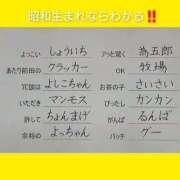 昭和生まれならわかる‼
よっこい しょういち
あたり前田の クラッカー
冗談は よしこちゃん
いただき マンモス
許して ちょんまげ
余裕の よっちゃん
アッと驚く 為五郎
OK 牧場
お茶の子 さいさい
ぴったし カンカン
がんばる んば
バッチ グー